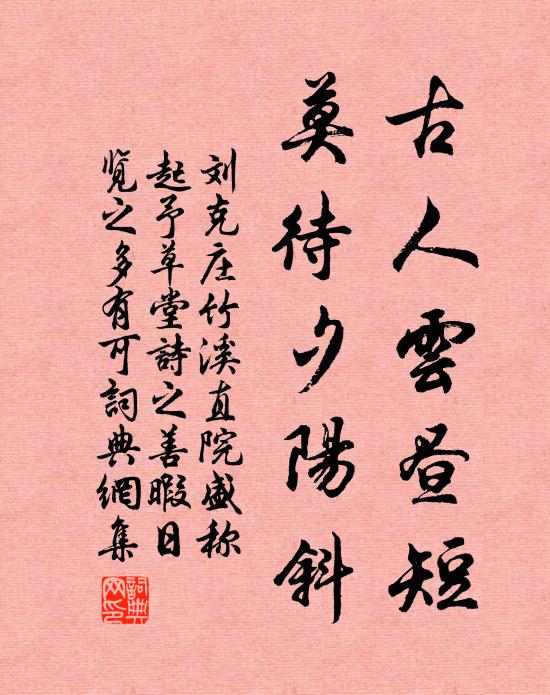 古人雲昼短
莫待夕陽斜
刘克庄竹溪直院盛称
起予草堂詩之善暇日
览之多有可詞典網集
詞典網印